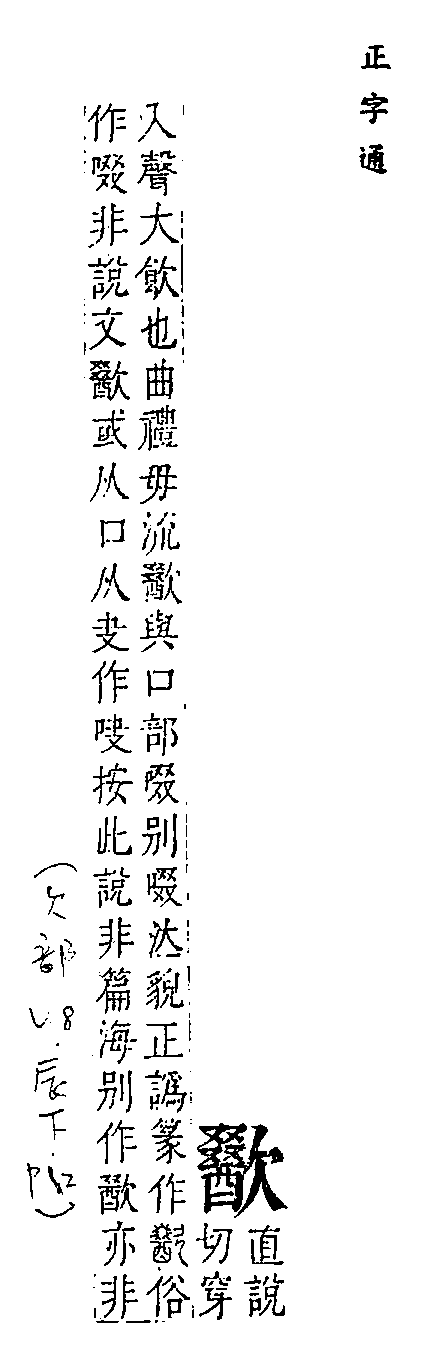 正字通
歠
直說
切穿
入聲大飲也曲禮毋流歠與口部啜別啜泣貌正譌篆作歠俗
作啜非說文歠或从口从叏作吷按此說非篇海別作歠亦非
(欠部 V8.辰下.P62)